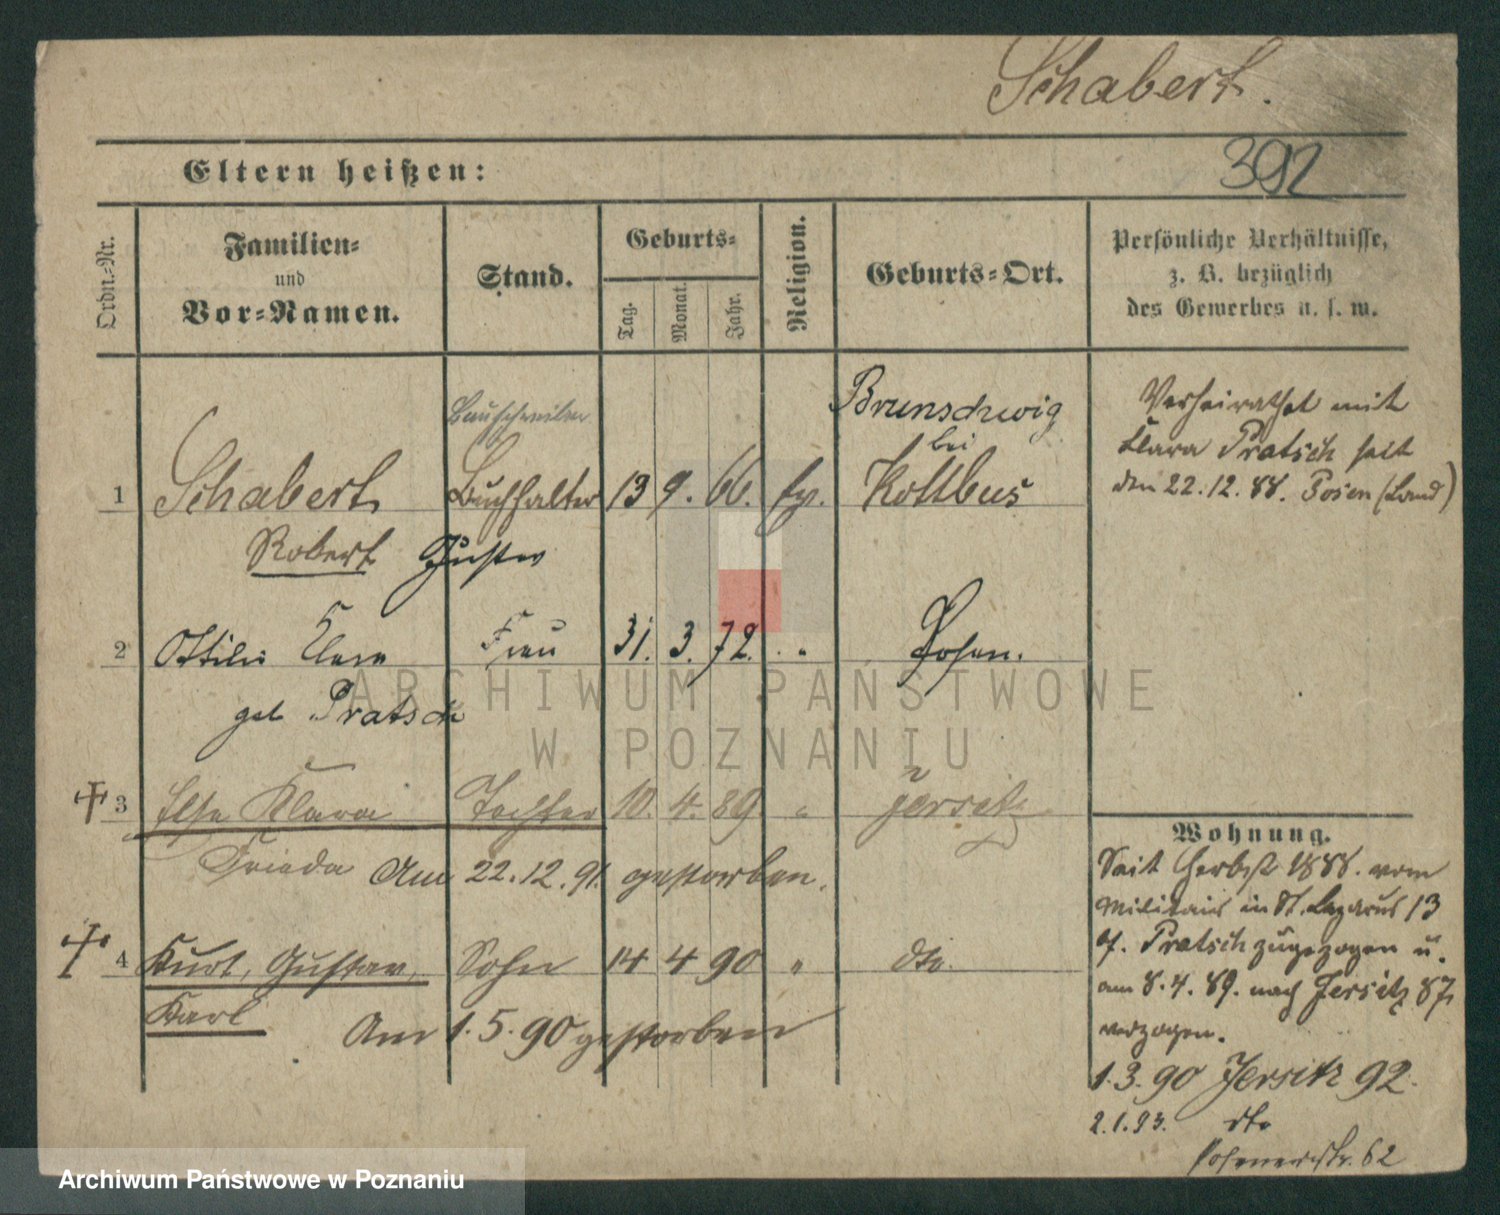 Schabert.
392
Eltern heißen:
Ordn.-Nr.
Familien-
und
Vor-Namen.
Stand.
Geburts-
Tag.
Monat.
Jahr.
Religion.
Geburts-Ort.
Persönliche Verhältnisse,
z. B. bezüglich
des Gewerbes u. s. w.
1
Schabert
Robert Gustav
Buchhalter
13 9. 66.
Brunschwig
bei
Kottbus
Verheirathet mit
Klara Pratsch seit
den 22.12.88. Posen (Land)
2 Ottilie Clara Frau 31. 3. 72. " Posen.
geb Pratsch
3 Else Klara Tochter 10. 4. 89 " Jersitz
Frieda Am 22.12.91. gestorben.
4 Kurt, Gustav, Sohn 14 4 90 " dto.
Karl Am 1.5.90 gestorben
Wohnung.
Seit Herbst 1888. vom
Militair in St. Lazarus 13
b. Pratsch zugezogen u.
am 8.4.89. nach Jersitz 87
verzogen.
1.3.90 Jersitz 92.
2.1.93. dto
Posenerstr. 62
ARCHIWUM PAŃSTWOWE
W POZNANIU
Archiwum Państwowe w Poznaniu